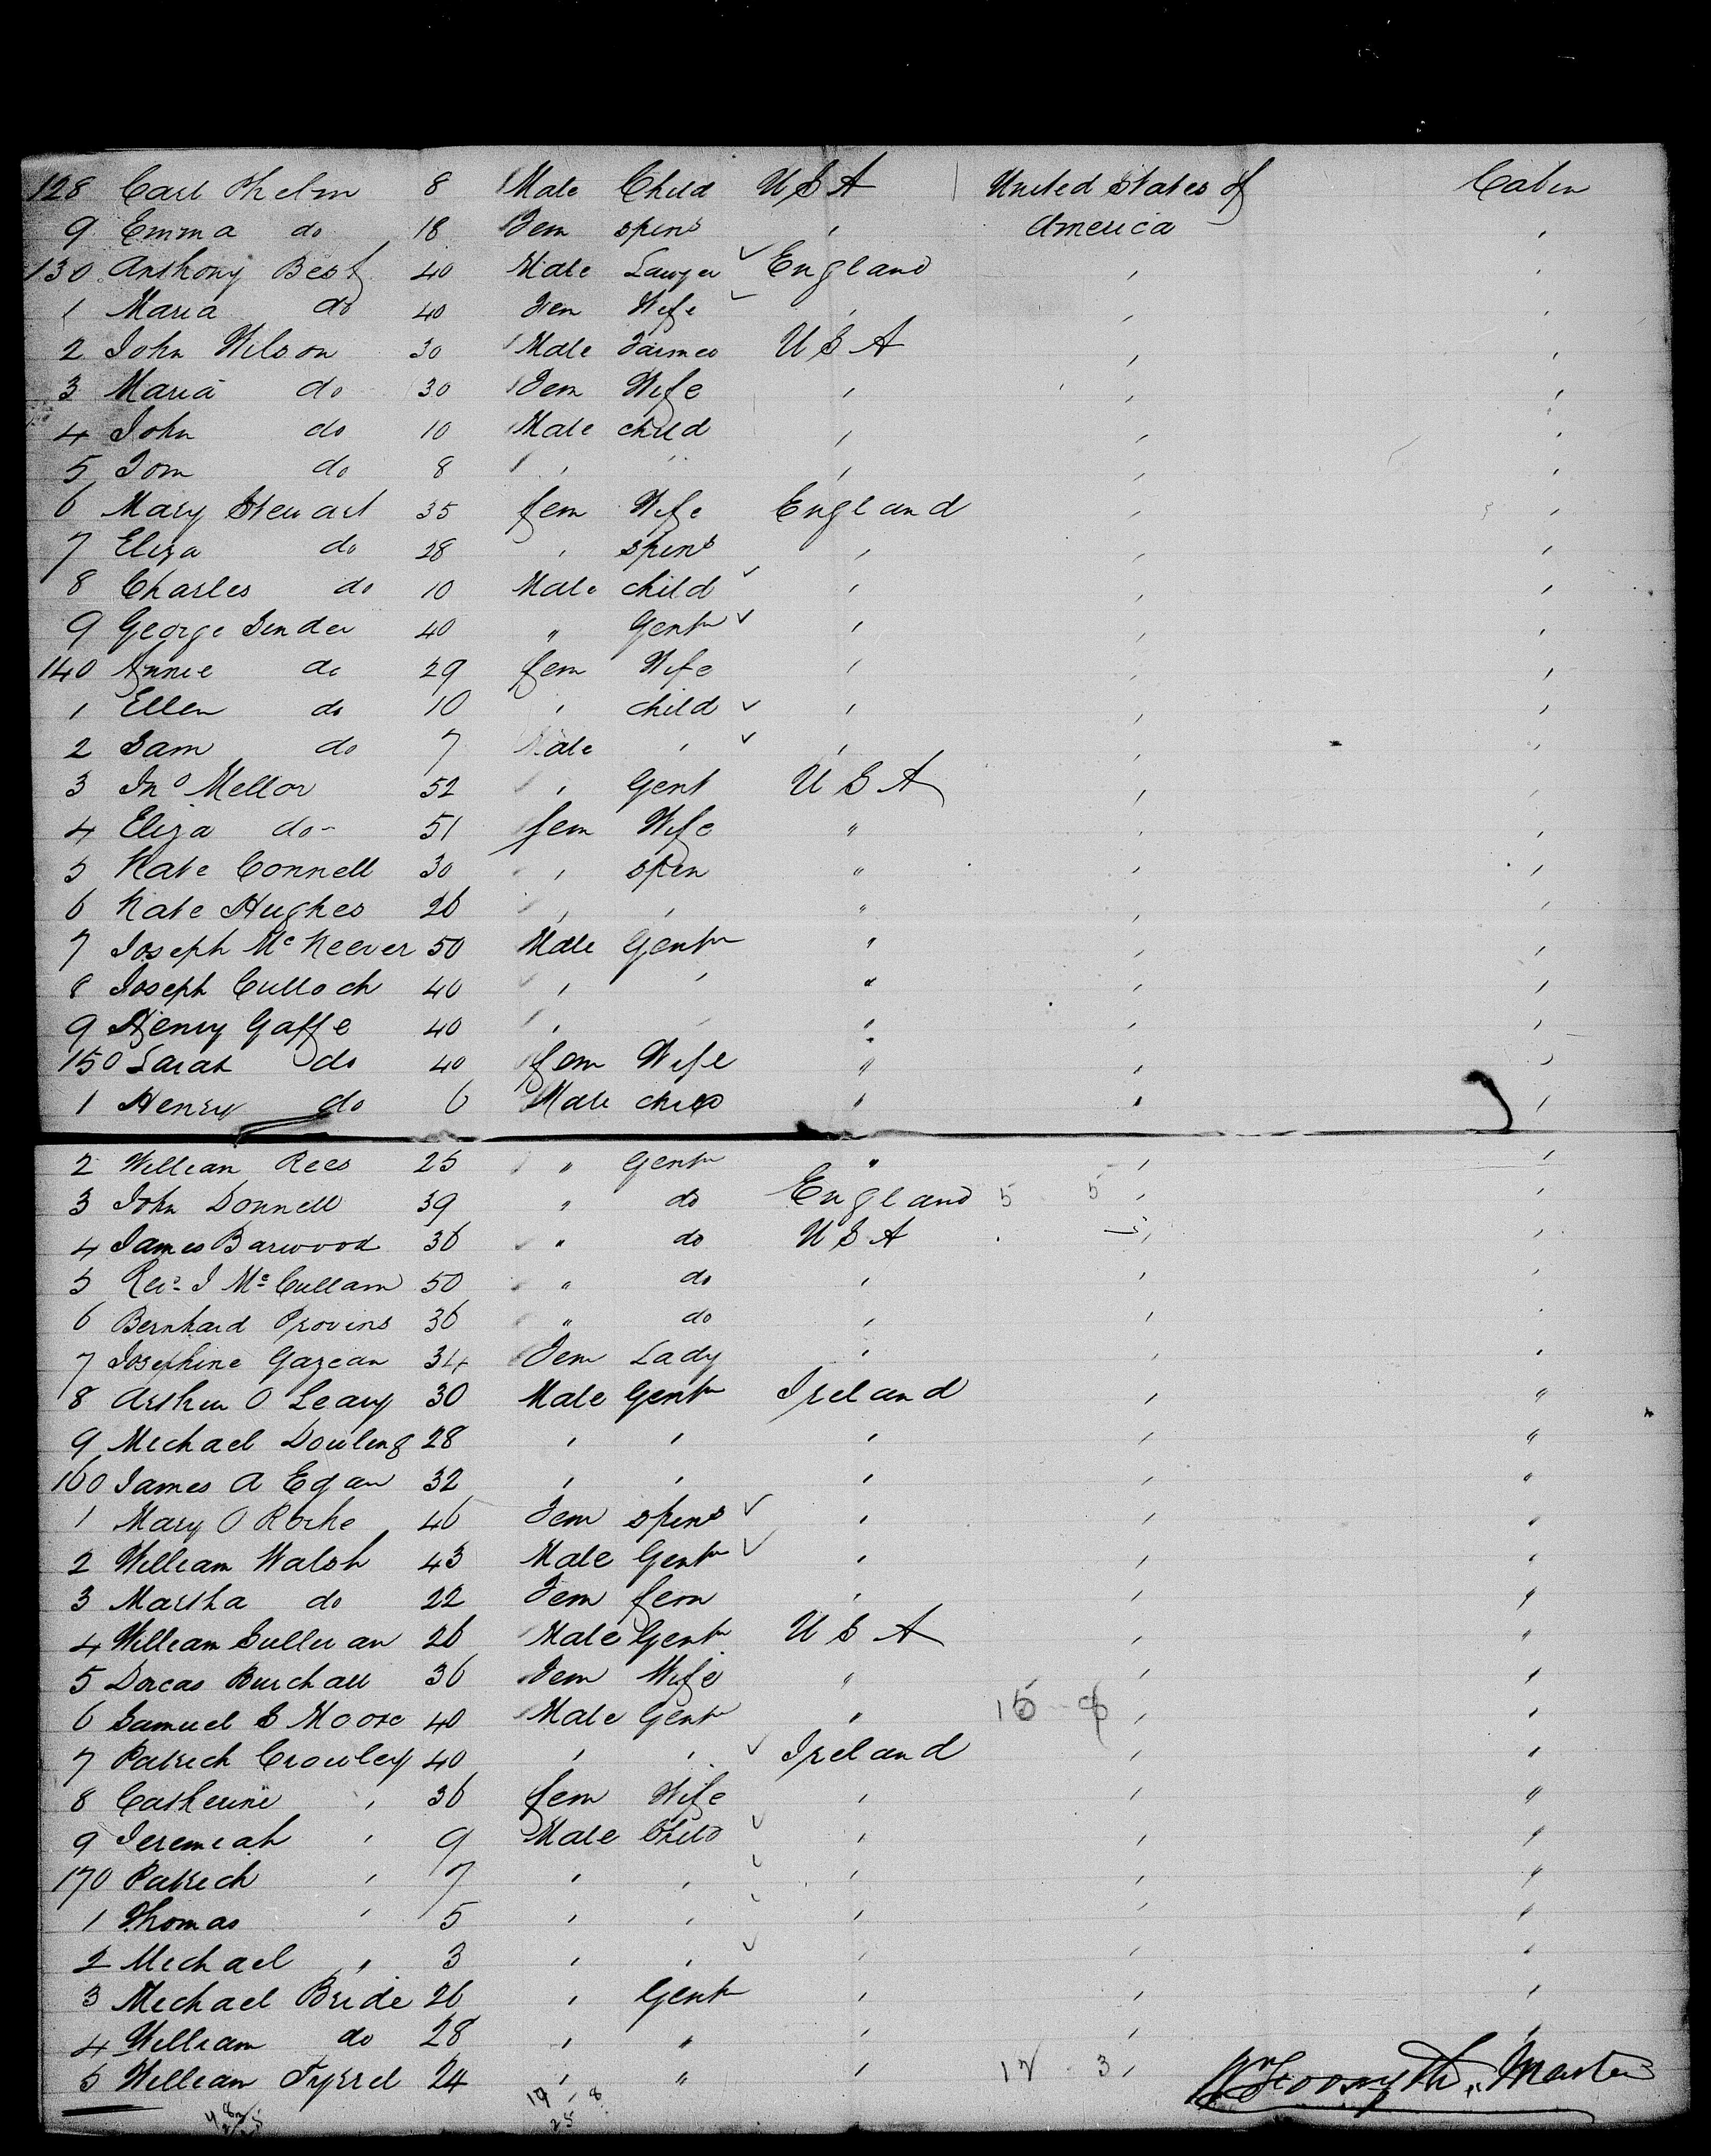 128 Carl Thelm 8 Male Child U S A United States of Cabin
9 Emma do 18 Fem spins , America ,
130 Anthony Best 40 Male Lawyer ✓ England , ,
1 Maria do 40 Fem Wife ✓ , , ,
2 John Wilson 30 Male Farmer U S A , ,
3 Maria do 30 Fem Wife , , ,
4 John do 10 Male child , , ,
5 Tom do 8 , , , , ,
6 Mary Stewart 35 fem Wife England , ,
7 Eliza do 28 , spins , , ,
8 Charles do 10 Male child ✓ , , ,
9 George Sender 40 " Gentn ✓ , , ,
140 Annie do 29 fem Wife , , ,
1 Ellen do 10 , child ✓ , , ,
2 Sam do 7 Male , ✓ , , ,
3 Jno Mellor 52 , Gent U S A , ,
4 Eliza do- 51 fem Wife " , ,
5 Kate Connell 30 , spin " , ,
6 Kate Hughes 26 , , " , ,
7 Joseph Mc Keever 50 Male Gentn " , ,
8 Joseph Culloch 40 , , " , ,
9 Henry Gaffe 40 , , " , ,
150 Sarah do 40 fem Wife " , ,
1 Henry do 6 Male child , , ,
2 William Rees 25 " Gentn " , ,
3 John Donnell 39 " do England 5 5 , ,
4 James Barwood 36 " do U S A , ,
5 Rev. J Mc Cullam 50 " do , , ,
6 Bernhard Provins 36 " do , , ,
7 Josephine Gazean 34 Fem Lady , , ,
8 Arthur O Leary 30 Male Gentn Ireland , "
9 Michael Dowling 28 , , , , "
160 James A Egan 32 , , , , "
1 Mary O Roche 46 Fem spins ✓ , , "
2 William Walsh 43 Male Gentn ✓ , , "
3 Martha do 22 Fem fem , , "
4 William Sullivan 26 Male Gentn U S A , "
5 Dorcas Burchall 36 Fem Wife " , "
6 Samuel S Moore 40 Male Gentn " , "
7 Patrick Crowley 40 , , ✓ Ireland , "
8 Catherine , 36 fem Wife , , "
9 Jeremiah , 9 Male Child ✓ , , "
170 Patrick , 7 , , ✓ , , "
1 Thomas , 5 , , ✓ , , "
2 Michael , 3 , , ✓ , , "
3 Michael Bride 26 , Gentn , , "
4 William do 28 , " , , "
5 William Tyrrel 24 , " , 17 3 ,
Wm Forsyth, Master
25